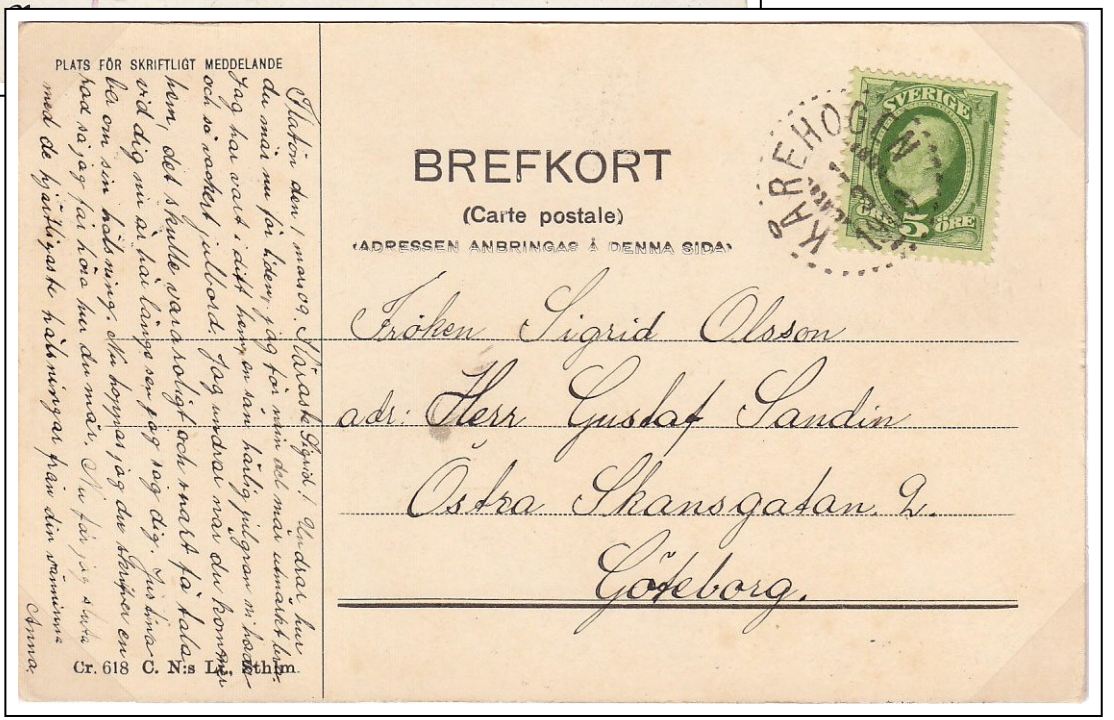 PLATS FÖR SKRIFTLIGT MEDDELANDE
Flatön den 1 mars 09. Käraste Sigrid! Undrar hur
du mår nu för tiden, jag för min del mår utmärkt bra.
Jag har vart i ditt hem, en sån härlig julgran ni hade
och så vackert julbord. Jag undrar när du kommer
hem, det skulle vara roligt och snart få tala
vid dig nu är här länge sen jag såg dig. Justina
ber om sin hälsning. Nu hoppas jag du skrifver en
rad så jag får höra hur du mår. Nu får jag sluta
med de hjärtligaste hälsningar från din väninna
Anna.
Cr. 618 C. N:s Lj., Sthlm.
BREFKORT
(Carte postale)
(ADRESSEN ANBRINGAS Å DENNA SIDA)
KÄREHOGEN
SVERIGE
5
ÖRE
Fröken Sigrid Olsson
adr: Herr Gustaf Sandin
Östra Skansgatan. 2.
Göteborg.